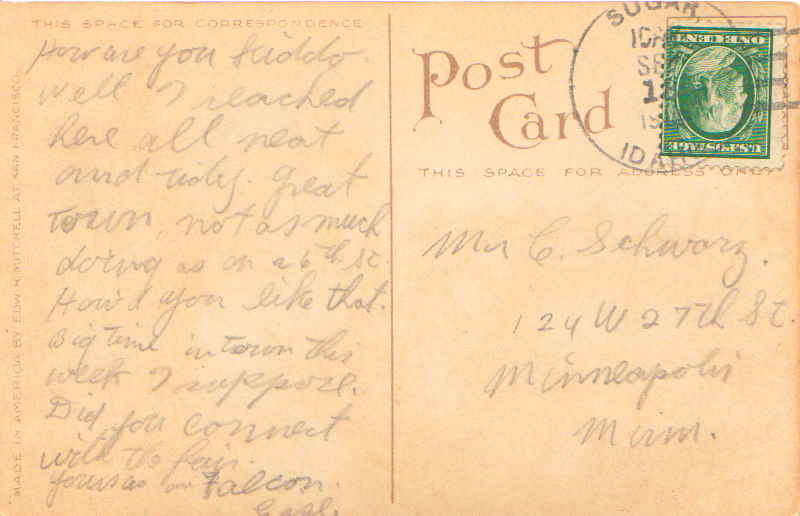 THIS SPACE FOR CORRESPONDENCE
How are you kiddo.
Well I reached
here all neat
and tidy. Great
town, not as much
doing as on a 6th St.
How'd you like that.
Big time in town this
week I suppose.
Did you connect
with the fair.
Yours as Falcon.
MADE IN AMERICA BY EDW H MITCHELL AT SAN FRANCISCO
Post
Card
THIS SPACE FOR ADDRESS ONLY
SUGAR,
IDAHO
U.S.POSTAGE
ONE CENT
Mr C. Schwarz.
124 W 27th St.
Minneapolis
Minn.